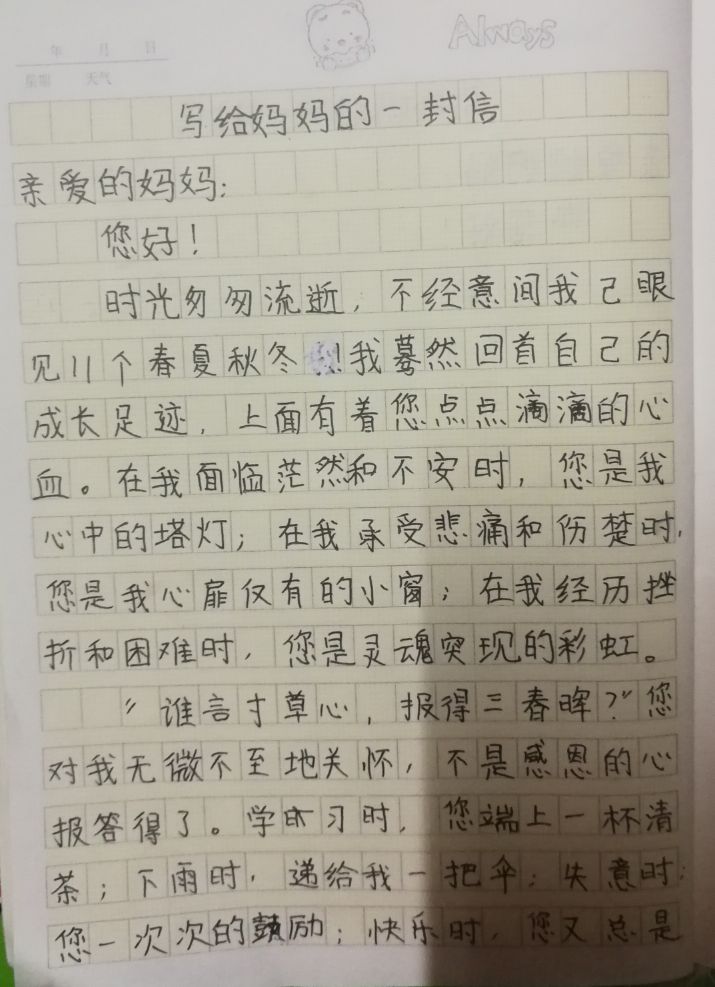 Always
年 月 日
星期 天气
写给妈妈的一封信
亲爱的妈妈：
您好！
时光匆匆流逝，不经意间我己眼
见11个春夏秋冬！我蓦然回首自己的
成长足迹，上面有着您点点滴滴的心
血。在我面临茫然和不安时，您是我
心中的塔灯；在我承受悲痛和伤楚时，
您是我心扉仅有的小窗；在我经历挫
折和困难时，您是灵魂突现的彩虹。
“谁言寸草心，报得三春晖？”您
对我无微不至地关怀，不是感恩的心
报答得了。学习时，您端上一杯清
茶；下雨时，递给我一把伞；失意时；
您一次次的鼓励；快乐时，您又总是